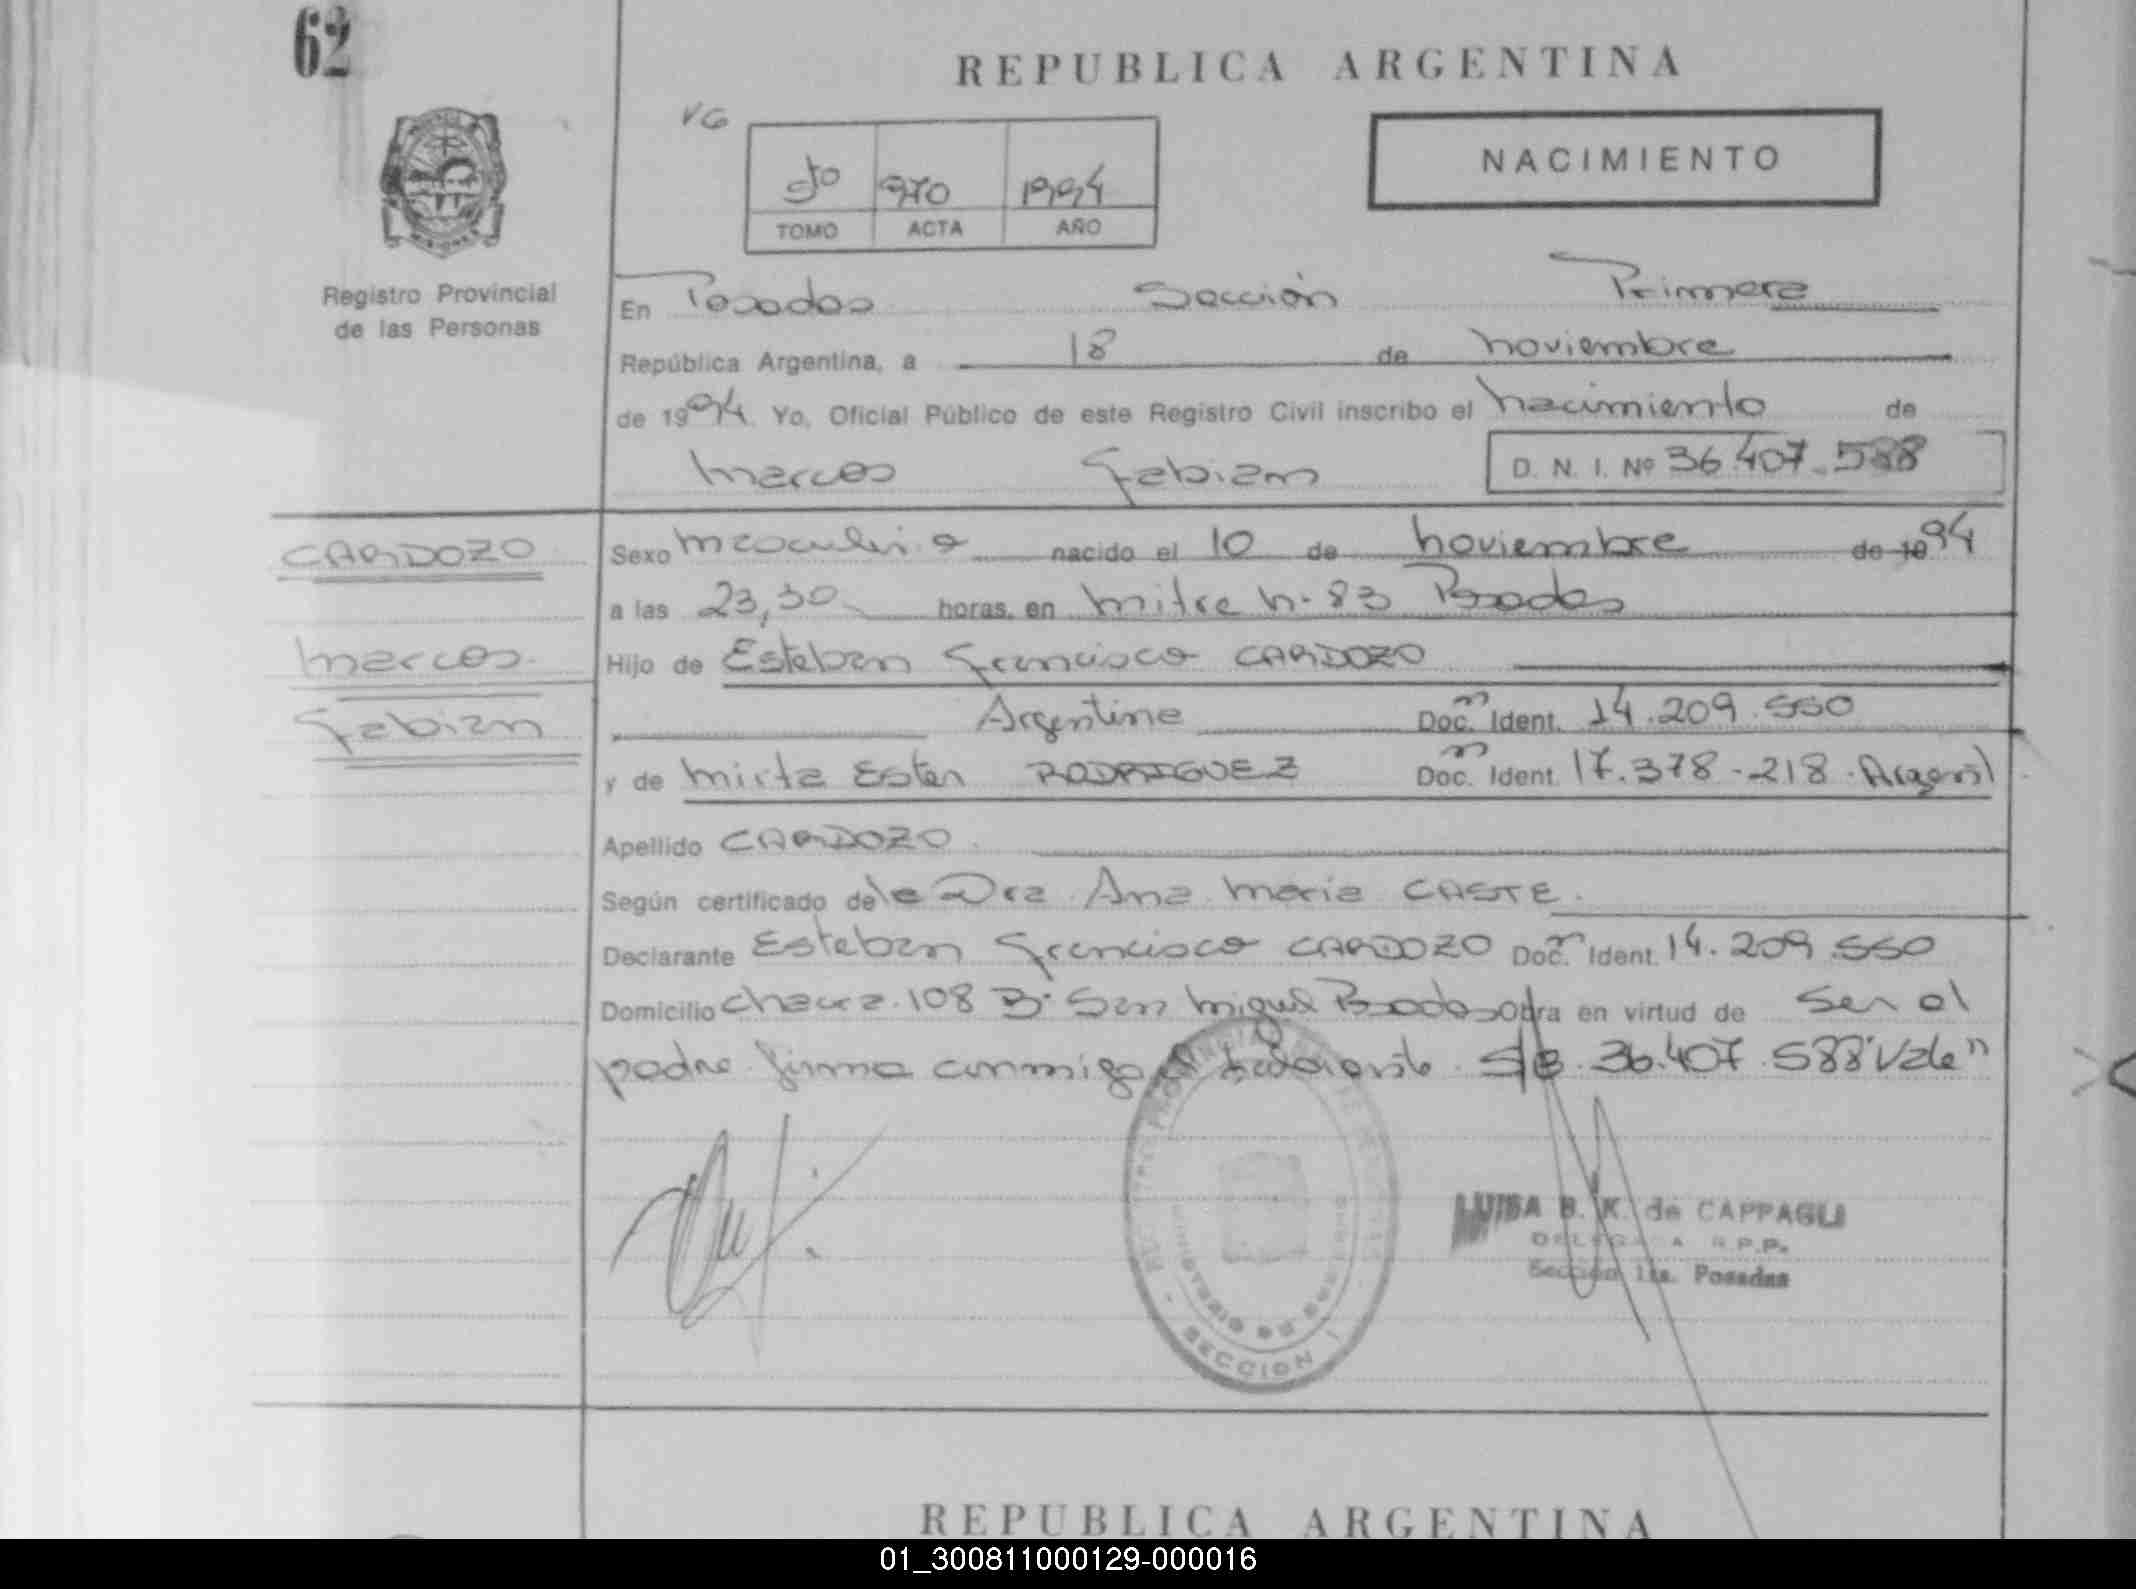 62
REPUBLICA ARGENTINA
VG
NACIMIENTO
970 1994
TOMO ACTA AÑO
Registro Provincial
de las Personas
En Posadas Sección Primera
República Argentina, a 18 de noviembre
de 1994 Yo, Oficial Público de este Registro Civil inscribo el nacimiento de
Marcos Fabian D. N. I. Nº 36.407.588
CARDOZO
Marcos
Fabian
Sexo masculino nacido el 10 de noviembre de 1994
a las 23,30 horas, en Mitre n° 83 Posadas
Hijo de Esteban Francisco CARDOZO
Argentino Doc. Ident. 14.209.550
y de Mirta Ester RODRIGUEZ Doc. Ident. 17.378.218
Apellido CARDOZO
Según certificado de la Dra. Ana Maria CASTE.
Declarante Esteban Francisco CARDOZO Doc. Ident. 14.209.550
Domicilio 108 B° San Miguel Posadas Obra en virtud de ser el
padre firma conmigo S/B. 36.407.588 "Vale"
LUISA B. K. de CAPPAGLI
DELEGADA R.P.P.
Sección 1ra. Posadas
SECCION
REPUBLICA ARGENTINA
01_300811000129-000016